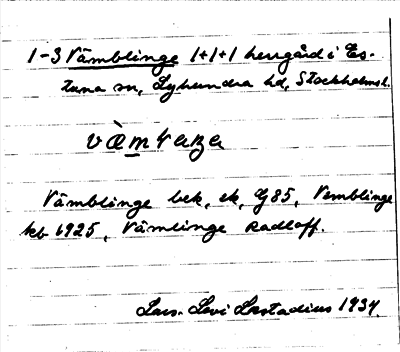 1-3 Vämblinge 1+1+1 herrgård i Es-
tuna sn, Lyhundra hd, Stockholmsl.
Vämblinge bek, ek, G85, Vemblinge
kb 1925, Vämlinge Radloff.
Lars-Levi Læstadius 1934.